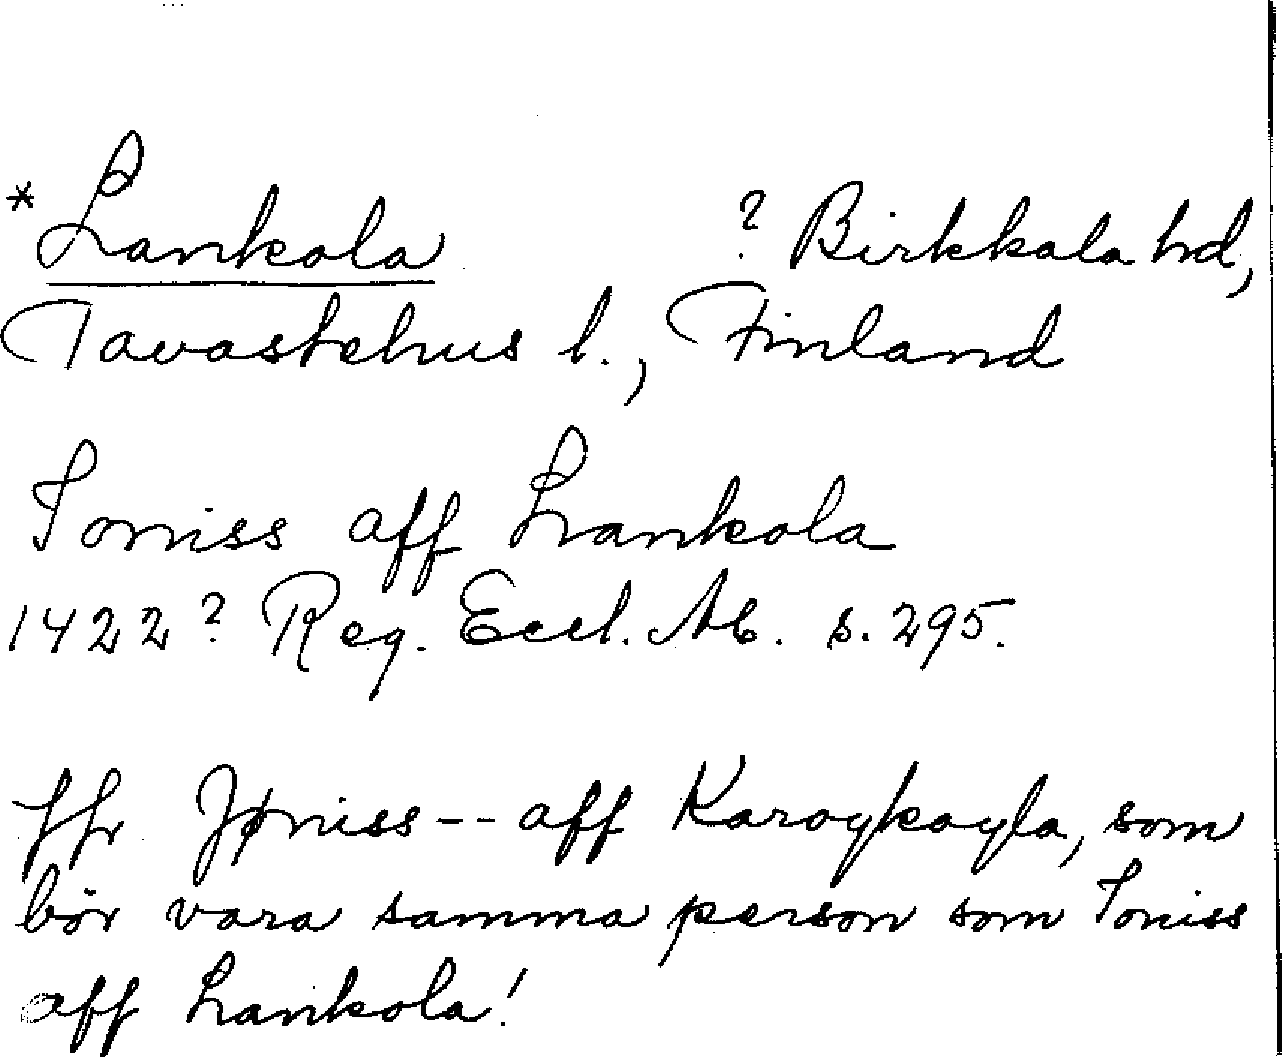 * Lankola ? Birkkala hd,
Tavastehus l., Finland
Toniss aff Lankola
1422? Reg. Eccl. Ab. s. 295.
Jfr Jøniss -- aff Karoykoyla, som
bör vara samma person som Toniss
aff Lankola!